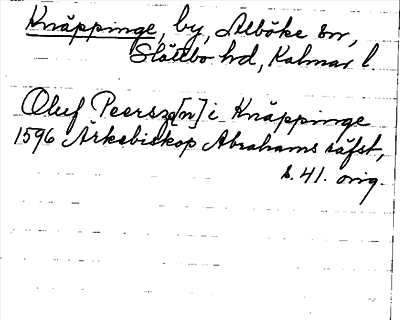 Knäppinge, by, Alböke sn,
Slättbo hd, Kalmar l.
Oluf Peersz[n] i Knäppinge
1596 Ärkebiskop Abrahams räfst,
s. 41. orig.